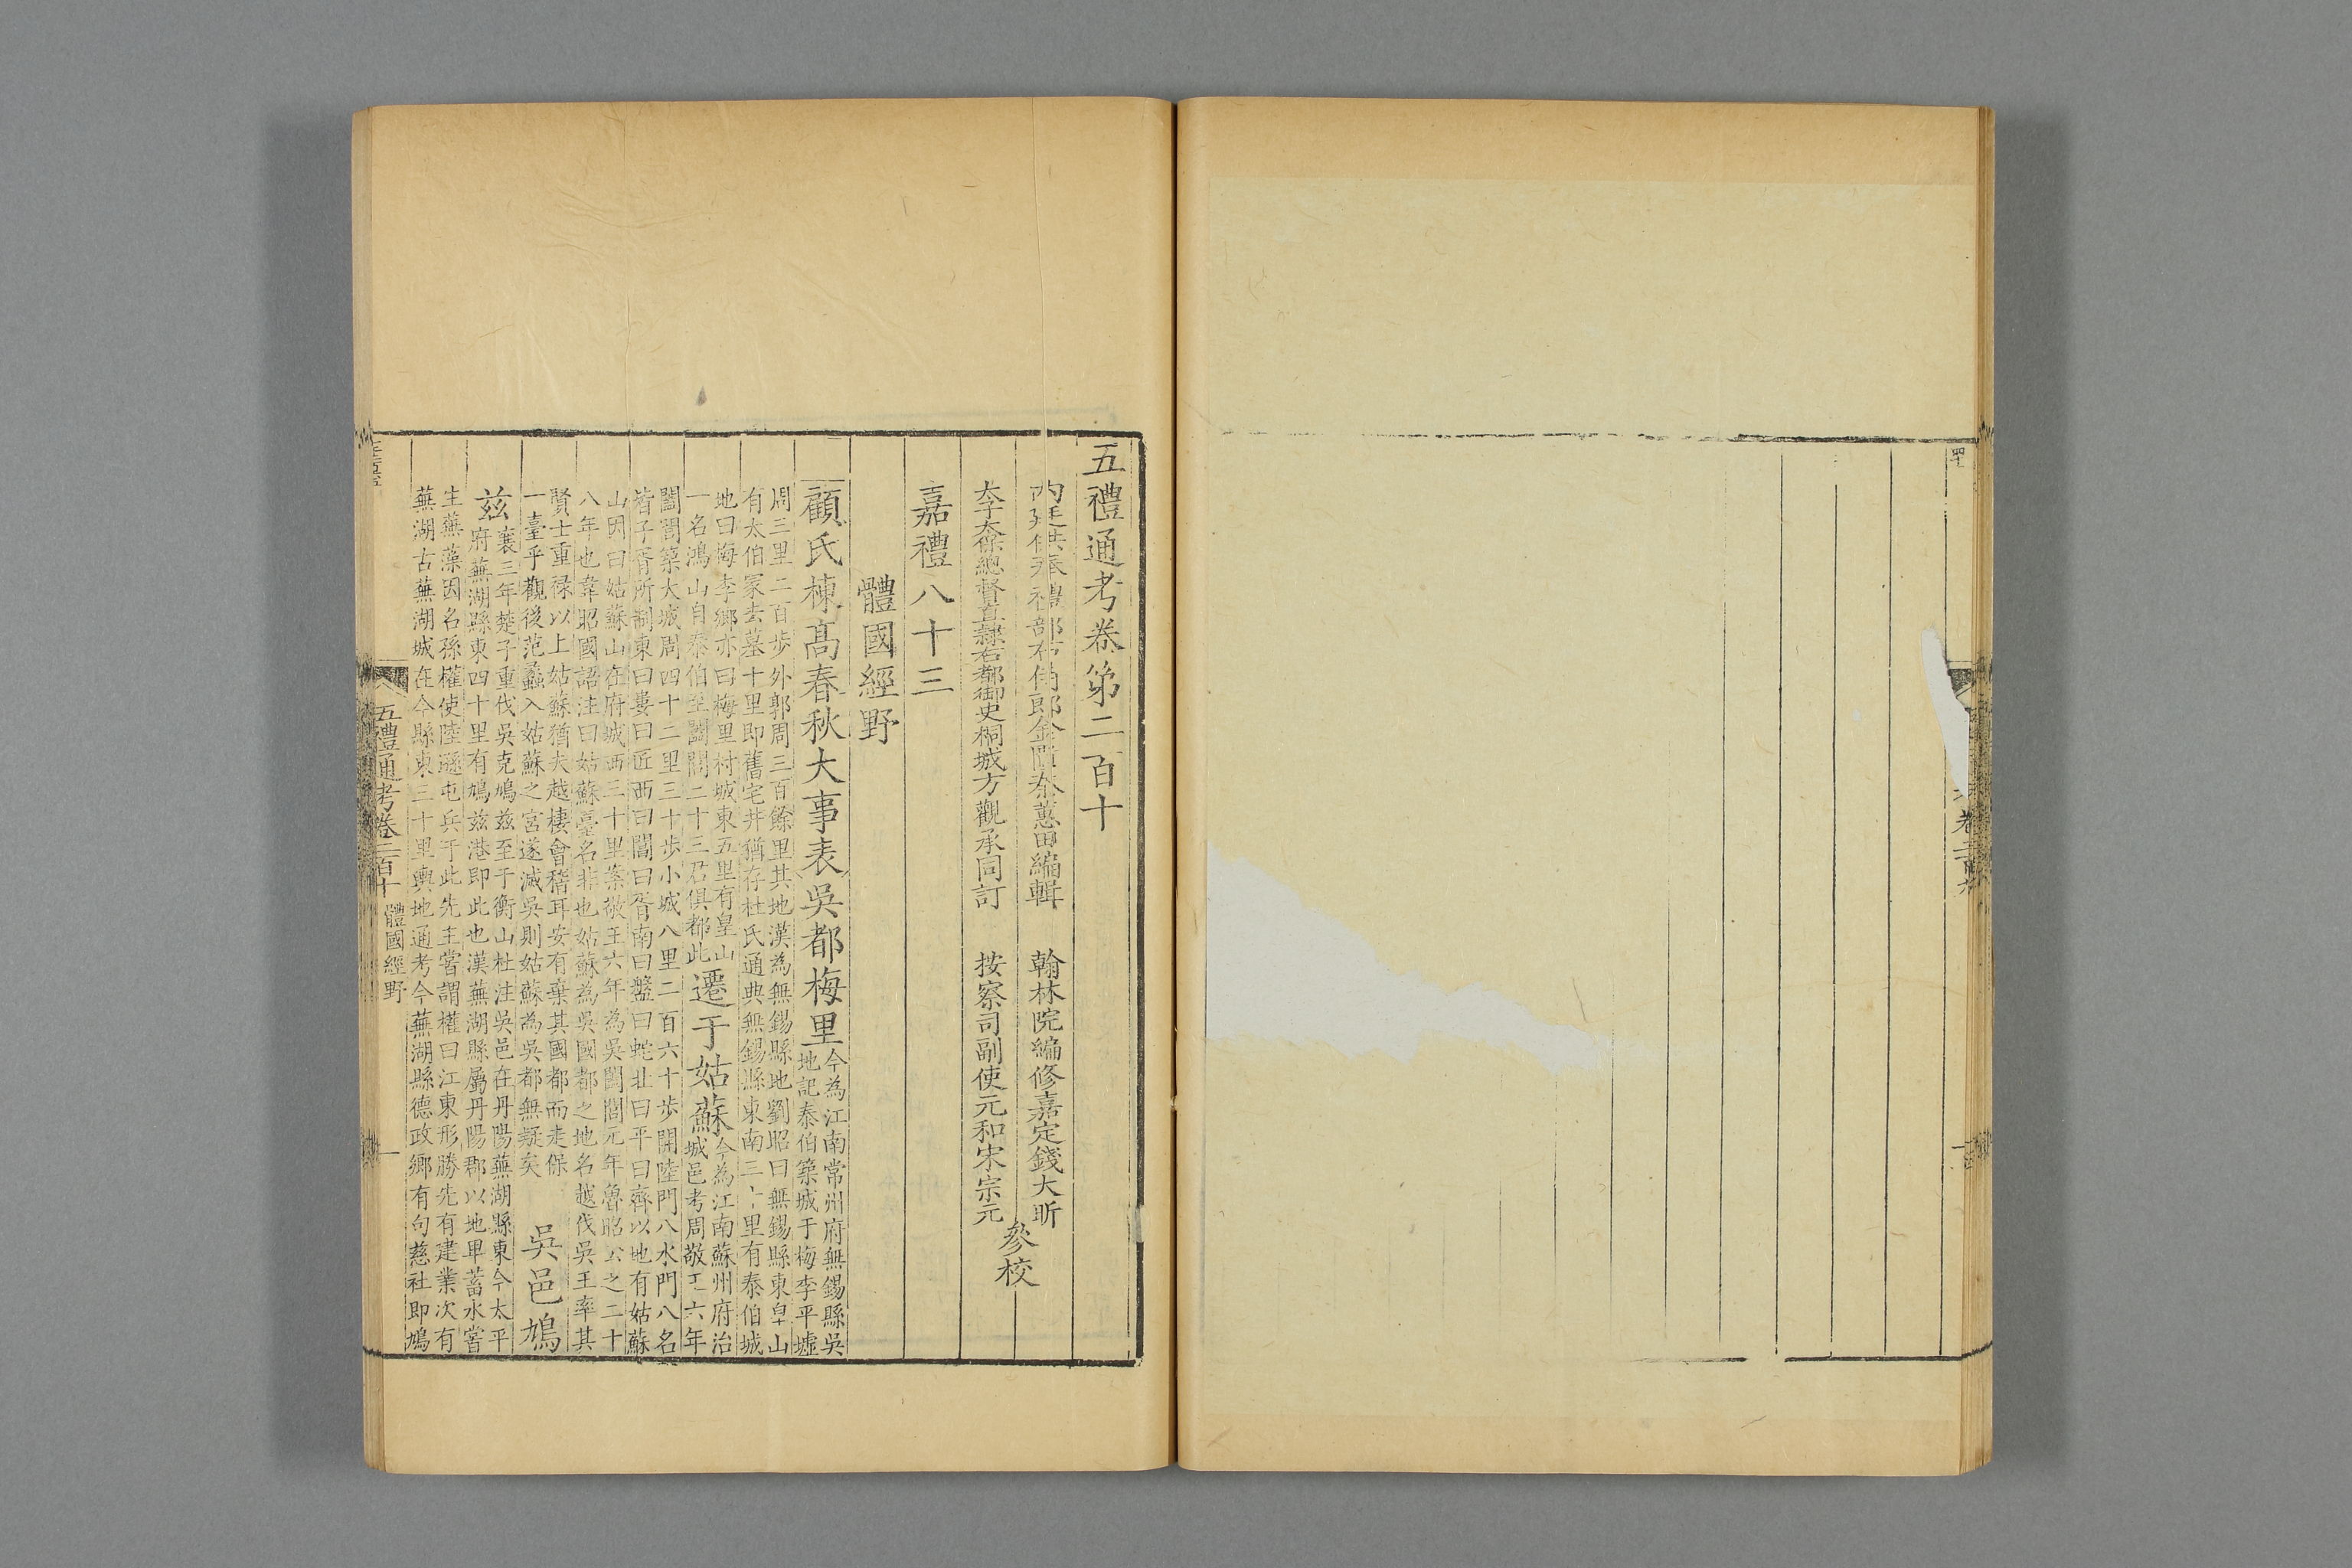 五禮通考卷第二百十
內廷供奉禮部右侍郎金匱秦蕙田編輯　翰林院編修嘉定錢大昕
太子太保總督直隷右都御史桐城方觀承同訂　按察司副使元和宋宗元
參校
嘉禮八十三
體國經野
顧氏棟高春秋大事表吳都梅里
今為江南常州府無錫縣吳
地記泰伯築城于梅李平墟
周三里二百步外郭周三百餘里其地漢為無錫縣地劉昭曰無錫縣東皇山
有太伯冢去墓十里即舊宅井猶存杜氏通典無錫縣東南三十里有泰伯城
地曰梅李鄉亦曰梅里村城東五里有皇山
一名鴻山自泰伯至闔閭二十三君俱都此
遷于姑蘇
今為江南蘇州府治
城邑考周敬王六年
闔閭築大城周四十二里三十步小城八里二百六十步開陸門八水門八名
皆子胥所制東曰婁曰匠西曰閶曰胥南曰盤曰蛇北曰平曰齊以地有姑蘇
山因曰姑蘇山在府城西三十里案敬王六年為吳闔閭元年魯昭公之二十
八年也韋昭國語注曰姑蘇臺名非也姑蘇為吳國都之地名越伐吳王率其
賢士重祿以上姑蘇猶夫越棲會稽耳安有棄其國都而走保
一臺乎觀後范蠡入姑蘇之宮遂滅吳則姑蘇為吳都無疑矣
吳邑鳩
茲
襄三年楚子重伐吳克鳩茲至于衡山杜注吳邑在丹陽蕪湖縣東今太平
府蕪湖縣東四十里有鳩茲港即此也漢蕪湖縣屬丹陽郡以地卑蓄水嘗
生蕪藻因名孫權使陸遜屯兵于此先主嘗謂權曰江東形勝先有建業次有
蕪湖古蕪湖城在今縣東三十里輿地通考今蕪湖縣德政鄉有句慈社即鳩
五禮通考卷二百十　體國經野
一